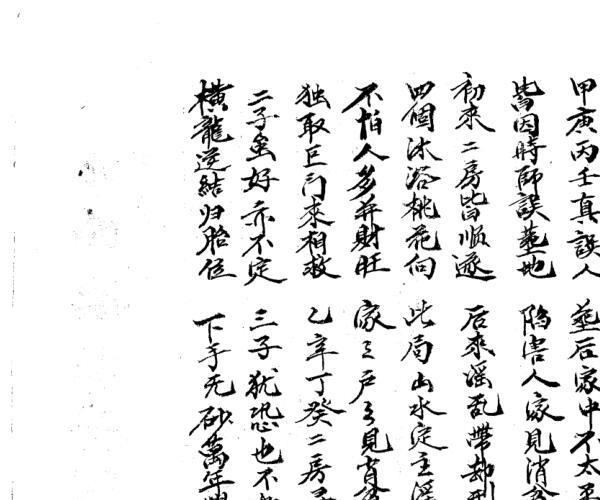 甲庚丙壬真誤人 葬后家中不太平
皆因時師誤葬地 陷害人家見消
初來二房皆順遂 后來淫乱帶劫
四個沐浴桃花向 此局山水定主淫
不怕人多并財旺 家々戶々見
独取巨门來相救 乙辛丁癸二房
二子虽好亦不定 三子犹恐也不
橫龍逆結归胎位 下手无砂萬年